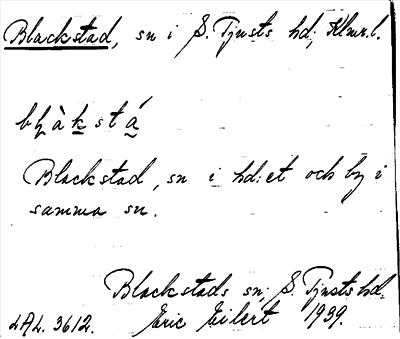 Blackstad, sn i S. Tjusts hd; Klmr.l.
Blackstad, sn i hd:et och by i
samma sn.
Blackstads sn; S. Tjusts hd.
LAL. 3612. Eric Eilert 1939.